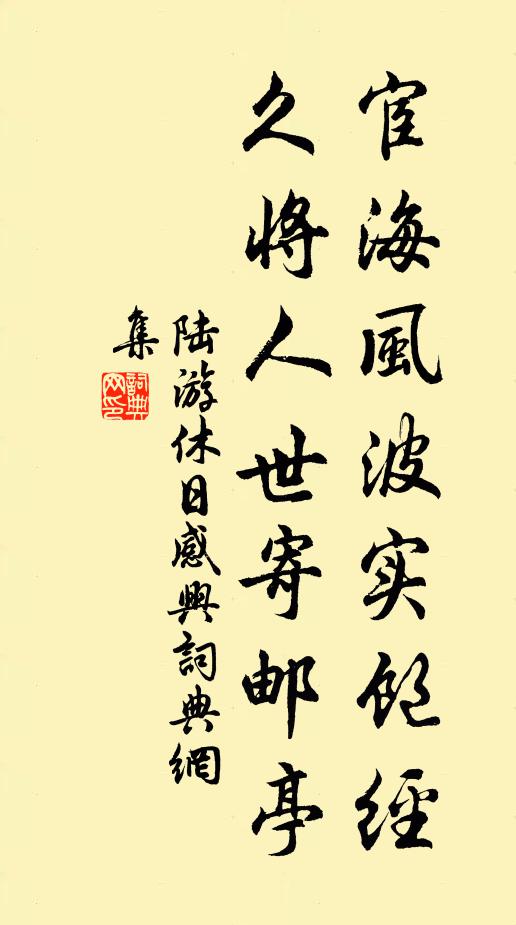 宦海風波实飽經
久將人世寄邮亭
陆游休日感興詞典網
集
詞典网印